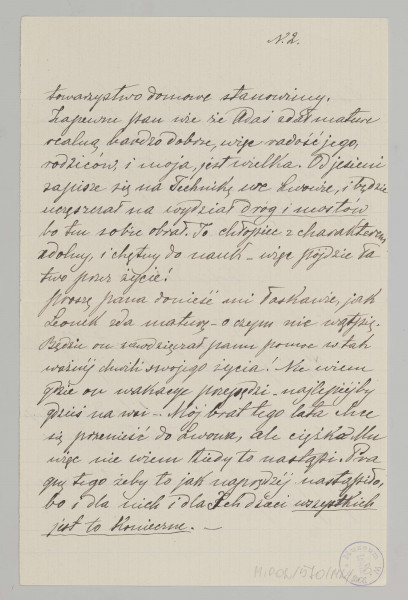 N. 2.
towarzystwo domowe stanowimy.
Zapewne pan wie że Adaś zdał maturę
realną bardzo dobrze, więc radość jego,
rodziców, i moja, jest wielka. Od jesieni
zapisze się na Technikę we Lwowie, i będzie
uczęszczał na wydział dróg i mostów
bo tu sobie obrał. To chłopiec z charakterem,
zdolny, i chętny do nauk – więc pójdzie ła
two przez życie!
Proszę pana donieść mi łaskawie, jak
Leonek zda maturę – o czym nie wątpię.
Będzie on zawdzięczał panu pomoc w tak
ważnej chwili swojego życia! Nie wiem
gdzie on wakacye przepędzi – najlepiej by
gdzieś na wsi –! Mój brat tego lata chce
się przenieść do Lwowa, ale ciężko Mu
więc nie wiem kiedy to nastąpi. Pra
gnę tego żeby to jak najprędzej nastąpiło,
bo i dla nich i dla Ich dzieci wszystkich
jest to konieczne. –